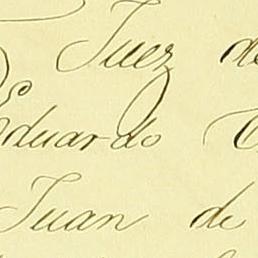 Juez de
Eduardo
Juan de